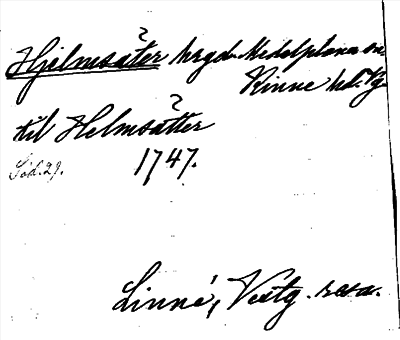 Hjelmsäter hrgd. Medelplana sn.
Kinne hd. Vg.
til Helmsätter
Sid. 29. 1747.
Linné, Vestg. resa.